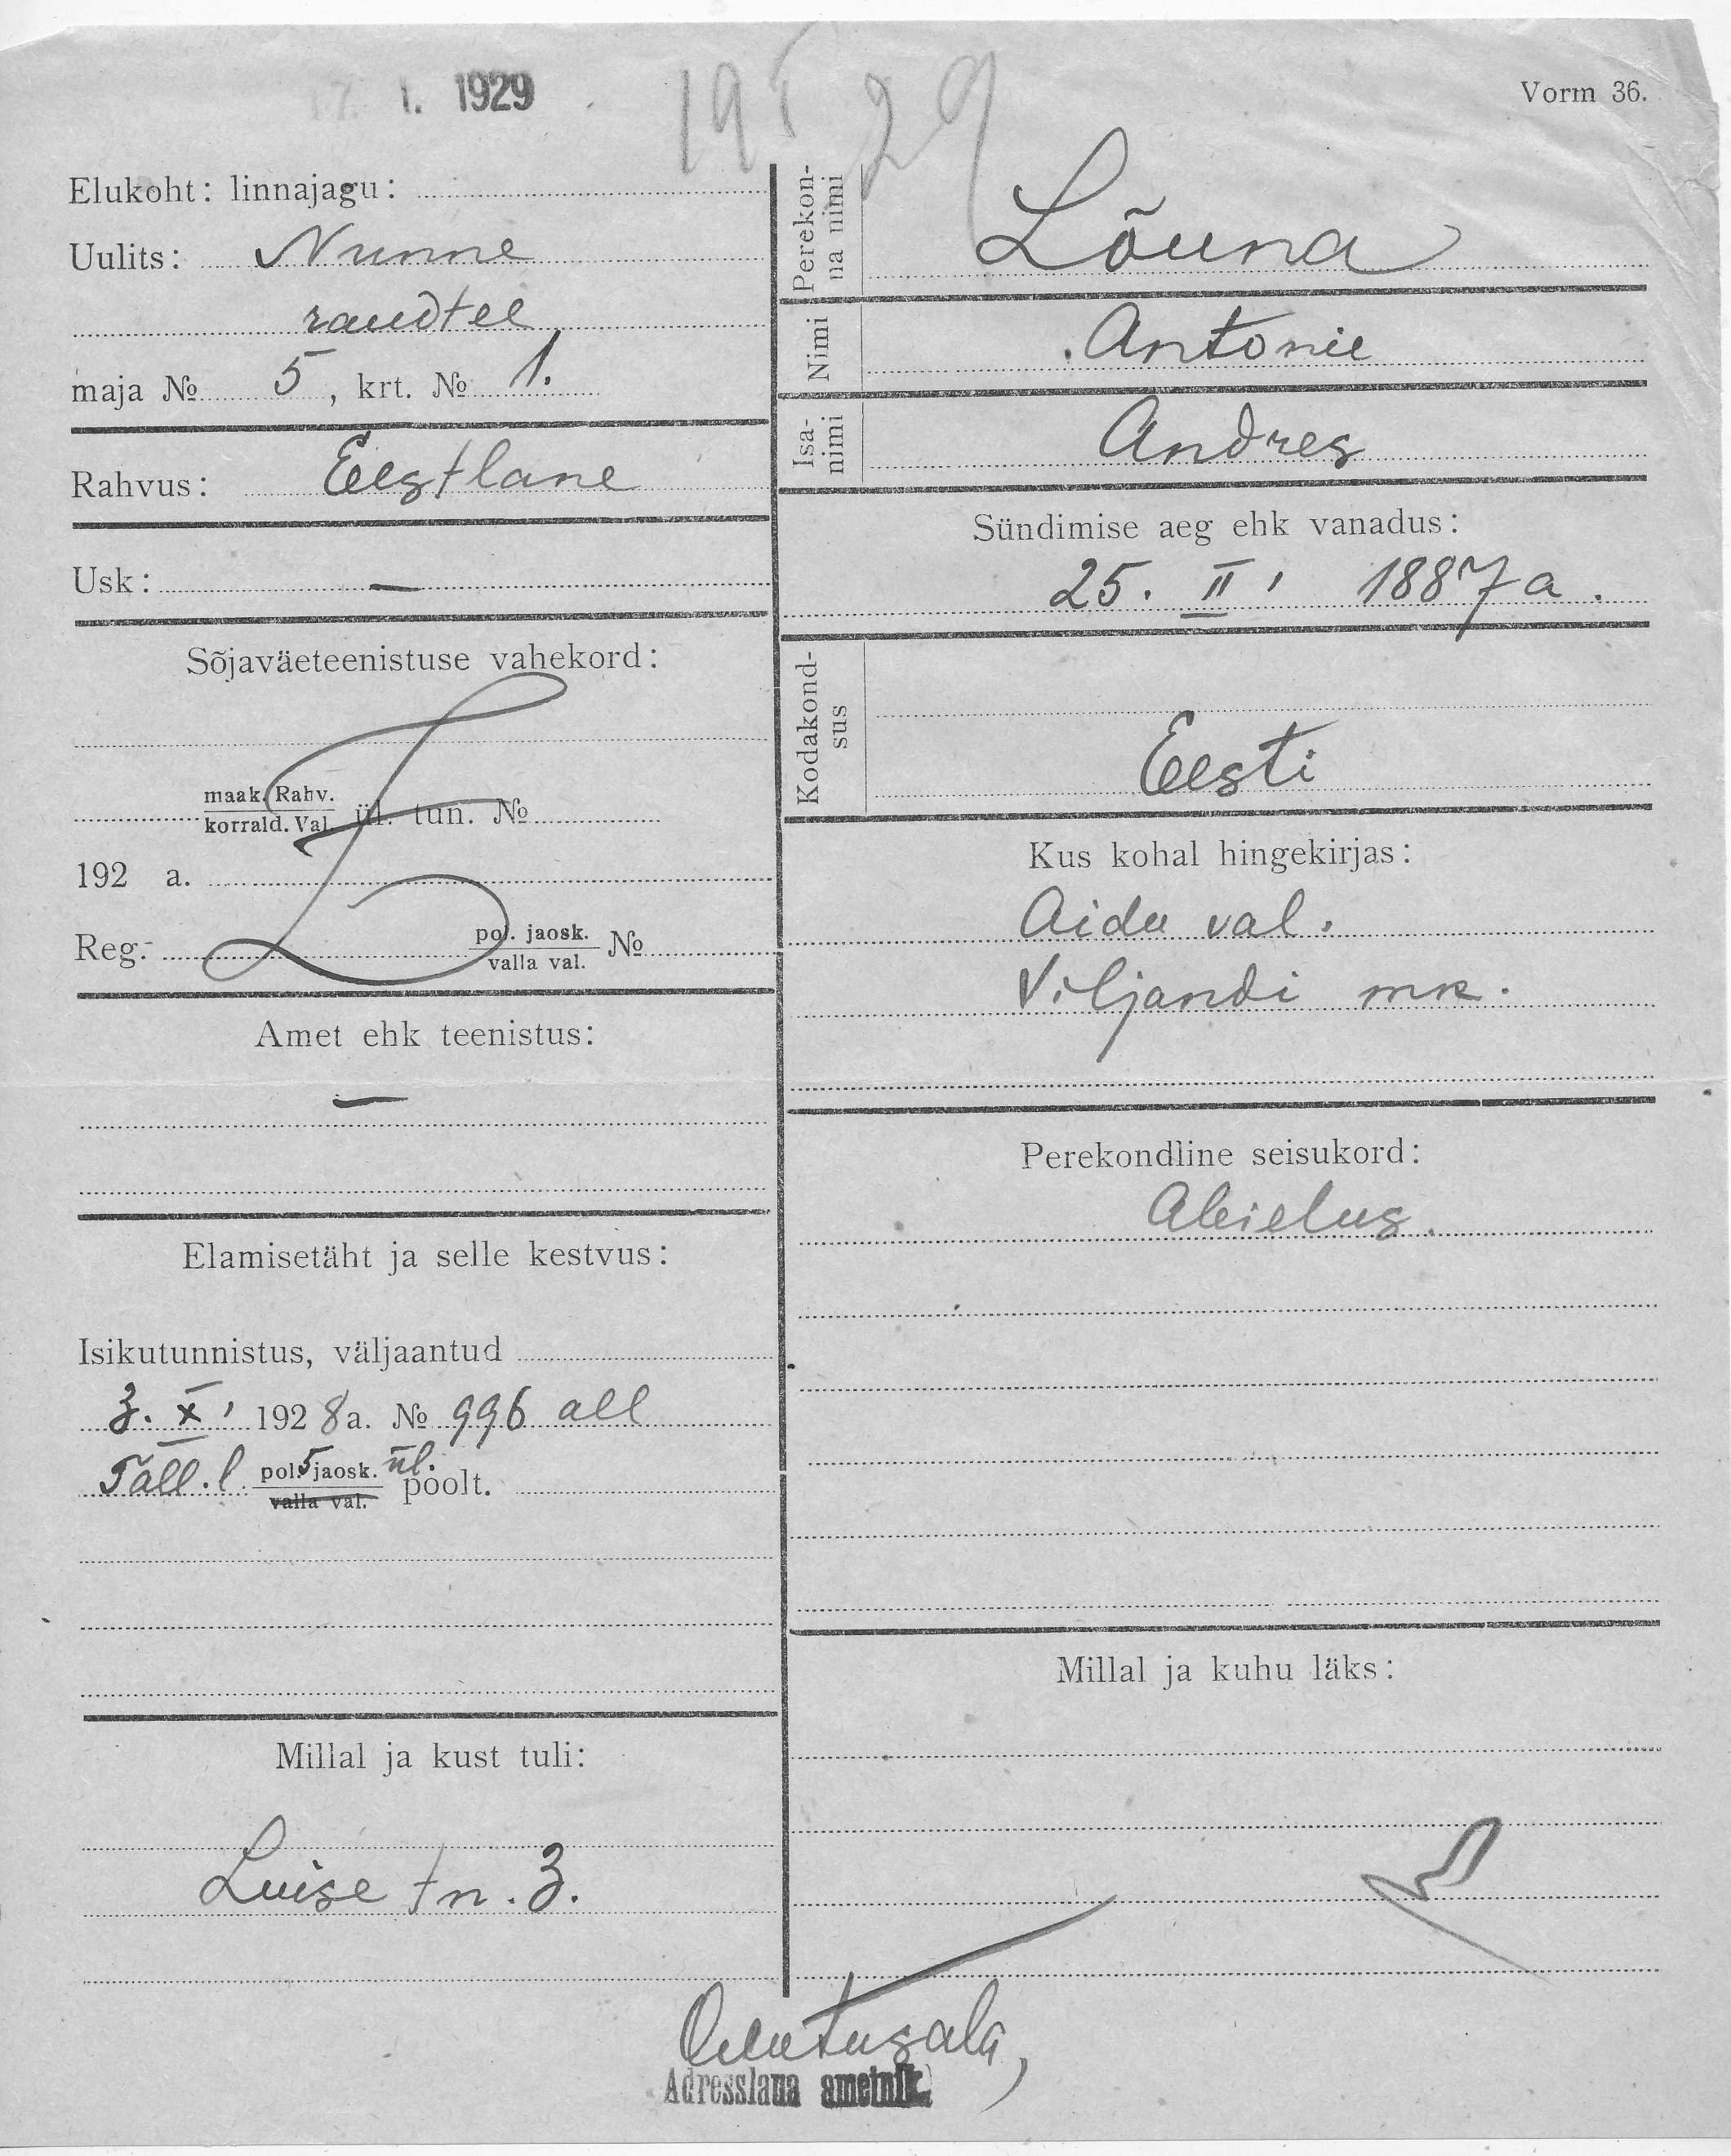 17. 1. 1929
19 I 29
Vorm 36.
Elukoht: linnajagu:
Uulits: Nunne
raudtee
maja № 5, krt. № 1.
Rahvus: Eestlane
Usk: —
Sõjaväeteenistuse vahekord:
maak. Rahv.
korrald. Val. ül. tun. №
192 a.
Reg. pol. jaosk. №
valla val.
Amet ehk teenistus:
—
Elamisetäht ja selle kestvus:
Isikutunnistus, väljaantud
3. X, 1928 a. № 996 all
Tall. l. pol. 5 jaosk. ül. poolt.
valla val.
Millal ja kust tuli:
Luise tn. 3.
Perekon-
na nimi
Lõuna
Nimi
Antonie
Isa-
nimi
Andres
Sündimise aeg ehk vanadus:
25. II, 1887 a.
Kodakond-
sus
Eesti
Kus kohal hingekirjas:
Aidu val.
Viljandi mk.
Perekondline seisukord:
Abielus.
Millal ja kuhu läks:
Adresslaua ametnik